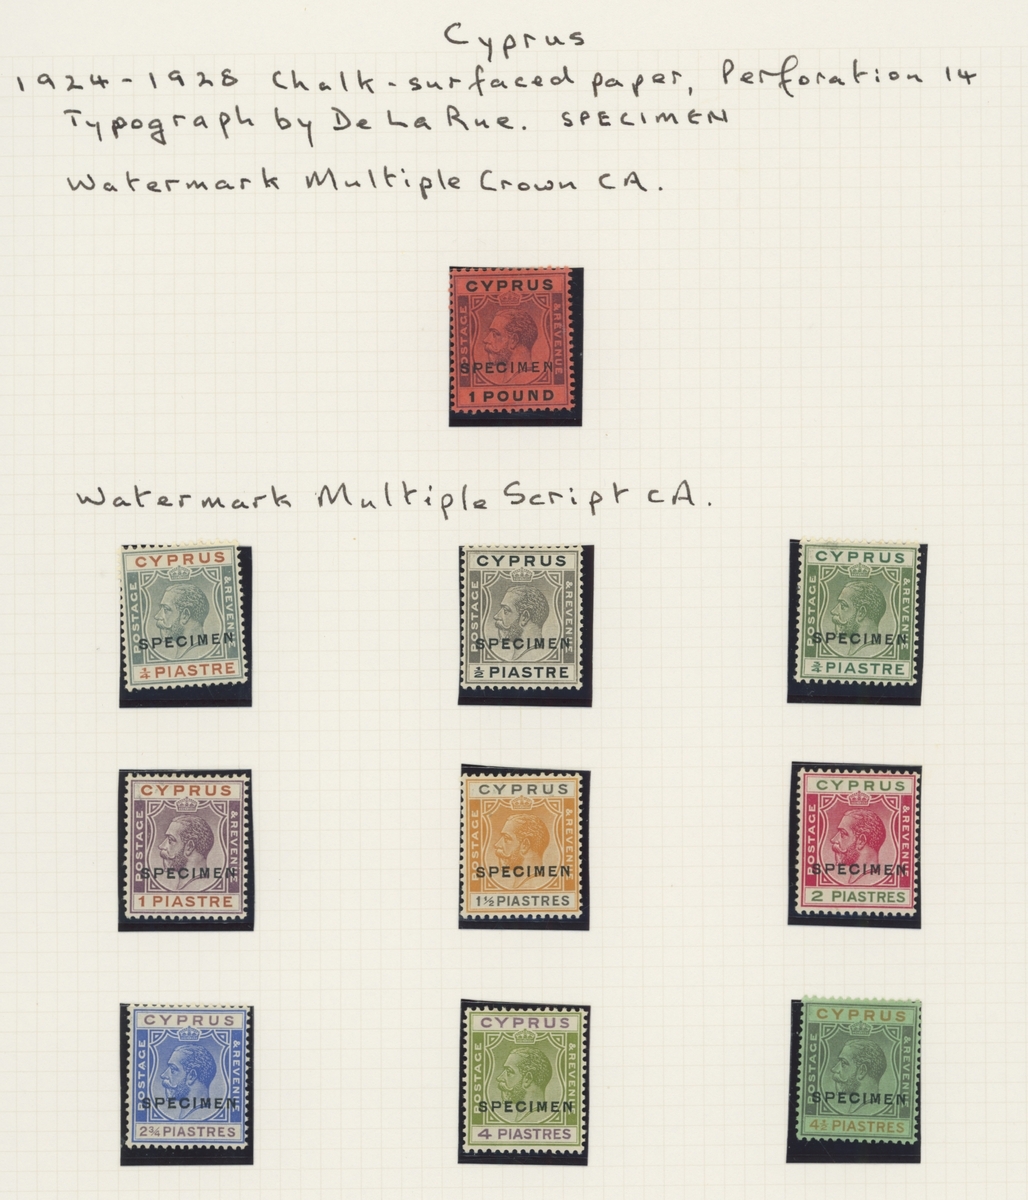 Cyprus
1924-1928 Chalk-surfaced paper, Perforation 14
Typograph by De La Rue. SPECIMEN
Watermark Multiple Crown CA.
CYPRUS
POSTAGE & REVENUE
SPECIMEN
1 POUND
Watermark Multiple Script CA.
CYPRUS
POSTAGE & REVENUE
SPECIMEN
¼ PIASTRE
CYPRUS
POSTAGE & REVENUE
SPECIMEN
½ PIASTRE
CYPRUS
POSTAGE & REVENUE
SPECIMEN
¾ PIASTRE
CYPRUS
POSTAGE & REVENUE
SPECIMEN
1 PIASTRE
CYPRUS
POSTAGE & REVENUE
SPECIMEN
1½ PIASTRES
CYPRUS
POSTAGE & REVENUE
SPECIMEN
2 PIASTRES
CYPRUS
POSTAGE & REVENUE
SPECIMEN
2¾ PIASTRES
CYPRUS
POSTAGE & REVENUE
SPECIMEN
4 PIASTRES
CYPRUS
POSTAGE & REVENUE
SPECIMEN
4½ PIASTRES